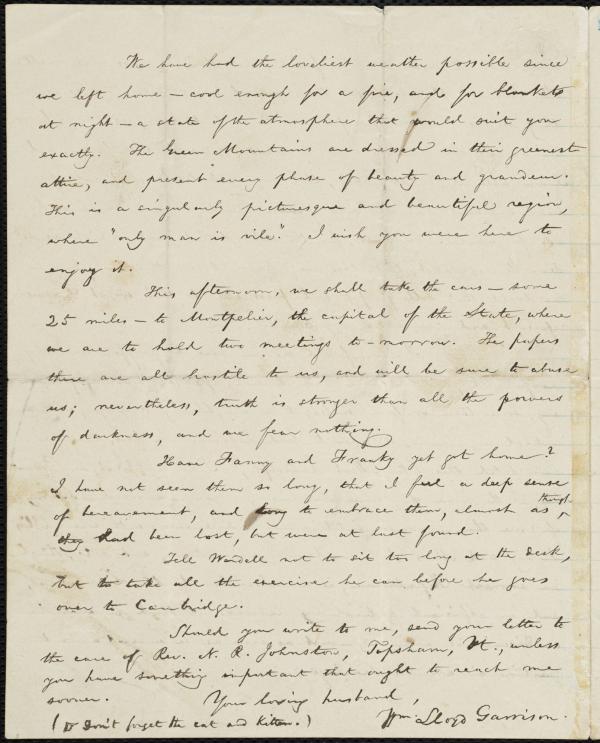 We have had the loveliest weather possible since
we left home — cool enough for a fire, and for blankets
at night — a state of the atmosphere that would suit you
exactly. The Green Mountains are dressed in their greenest
attire, and present every phase of beauty and grandeur.
This is a singularly picturesque and beautiful region,
where "only man is vile." I wish you were here to
enjoy it.
This afternoon, we shall take the cars — some
25 miles — to Montpelier, the capital of the State, where
we are to hold two meetings to-morrow. The papers
there are all hostile to us, and will be sure to abuse
us; nevertheless, truth is stronger than all the powers
of darkness, and we fear nothing.
Have Fanny and Franky yet got home?
I have not seen them so long, that I feel a deep sense
of bereavement, and long to embrace them, almost as though
they had been lost, but were at last found.
Tell Wendell not to sit too long at the desk,
but to take all the exercise he can before he goes
over to Cambridge.
Should you write to me, send your letter to
the care of Rev. N. R. Johnston, Topsham, Vt., unless
you have something important that ought to reach me
sooner. Your loving husband,
( Don't forget the cat and kitten.) Wm. Lloyd Garrison.